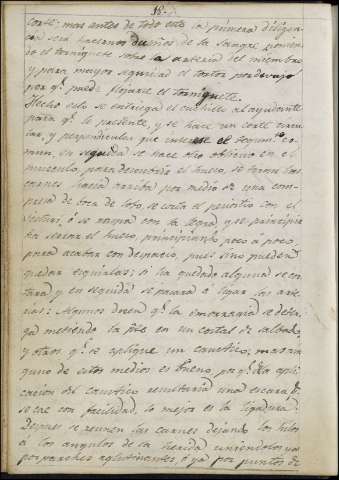 18.
corte: mas antes de todo esto la primera diligen-
cia será hacernos dueños de la sangre ponien-
do el torniquete sobre la arteria del miembro
y para mayor seguridad el tortor por devajo
por q.e puede flojarse el torniquete.
Hecho esto se entriega el cuchillo al ayudante
para q.e lo presente, y se hace un corte circu-
lar, y perpendicular que interese el tegum.to co-
mun, en seguida se hace otro oblicuo en el
musculo, para descubrir el hueso, se toman las
carnes hacia arriba por medio de una com-
presa de dos cabos, se corta el periostio con el
bisturi, ó se raspa con la legra, y se principia
ha serrar el hueso, principiando poco á poco,
para acabar con despacio, pues sino pueden
quedar esquirlas; si ha quedado alguna se cor-
tará y en seguida se pasará á ligar las arte-
rias: Algunos dicen q.e la emorragia se detie-
ga metiendo la p.te en un costal de salbado,
y otros q.e se aplique un caustico; mas nin-
guno de estos medios es bueno, por q.e la apli-
cacion del caustico resultaria una escara q.e
se cae con facilidad, lo mejor es la ligadura.
Despues se reunen las carnes dejando los hilos
á los angulos de la herida uniendolos ya
por parches aglutinantes, ó ya por puntos de